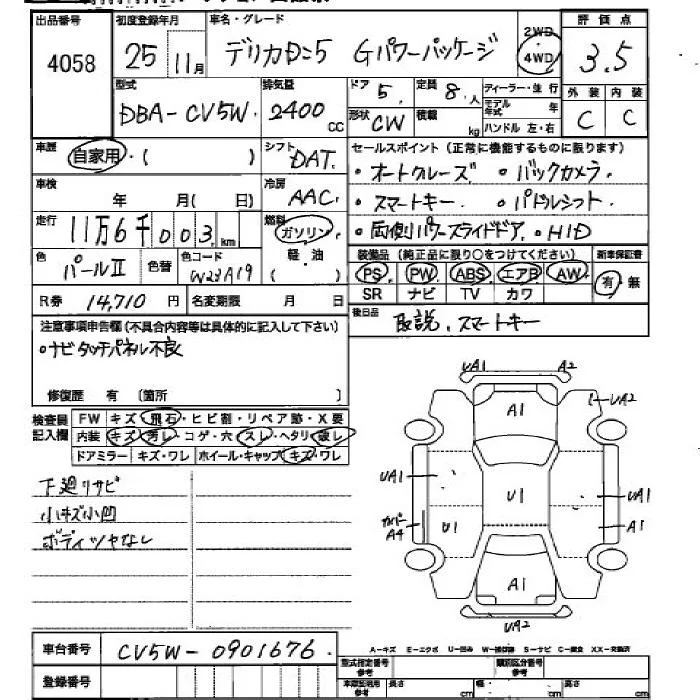 出品番号 初度登録年月 車名・グレード 2WD 評価点
4058 25 11月 デリカD:5 Gパワーパッケージ 4WD 3.5
型式 排気量 ドア 定員 ディーラー・並行 外装 内装
DBA-CV5W 2400 CC 5 8人 モデル年式 年 C C
形状 CW 積載 kg ハンドル 左・右
車歴 自家用・( ) シフト DAT. セールスポイント(正常に機能するものに限ります)
・オートクルーズ ・バックカメラ
車検 年 月( 日) 冷房 AAC. ・スマートキー ・パドルシフト
走行 11万6千003km 燃料 ガソリン 軽・油 ( ) ・両側パワースライドドア ・HID
色 パールII 色替 色コード W23A19 装備品(純正品に限り○をつけてください) 新車保証書
PS PW ABS エアB AW 有・無
R券 14,710円 名変期限 月 日 SR ナビ TV カワ
注意事項申告欄(不具合内容等は具体的に記入して下さい) 後日品 取説、スマートキー
・ナビタッチパネル不良
修復歴 有 〔箇所 〕
検査員記入欄 FW キズ・飛石・ヒビ割・リペア跡・X要
内装 キズ・汚レ・コゲ・穴・スレ・ヘタリ・破レ
ドアミラー キズ・ワレ ホイール・キャップ キズ・ワレ
下廻リサビ
小キズ小凹
ボディツヤなし
UA1 A2
A1 UA2
UA1 U1 UA1
カバーA4 U1 A1
A1
UA2
車台番号 CV5W-0901676
A-キズ E-エクボ U-凹み W-補修跡 S-サビ C-腐食 XX-交換済
登録番号 型式指定番号 参考 類別区分番号 参考
車庫証明用 参考 長さ cm 幅 cm 高さ cm